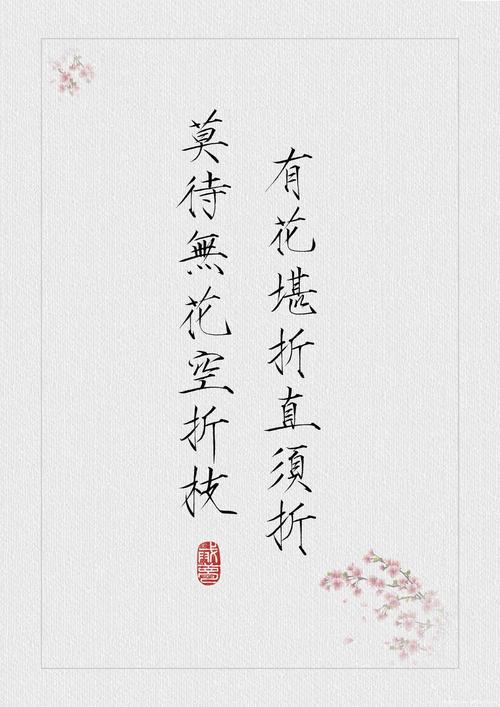 有花堪折直須折
莫待無花空折枝